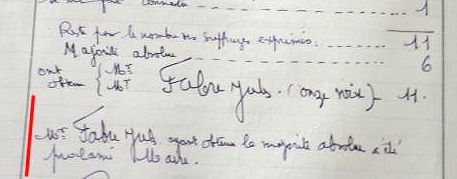 1
Reste pour le nombre des suffrages exprimés........ 11
Majorité absolue........ 6
ont obtenu { Mr
Mr Fabre Jules. (onze voix) - 11.
Mr Fabre Jules ayant obtenu la majorité absolue a été
proclamé Maire.